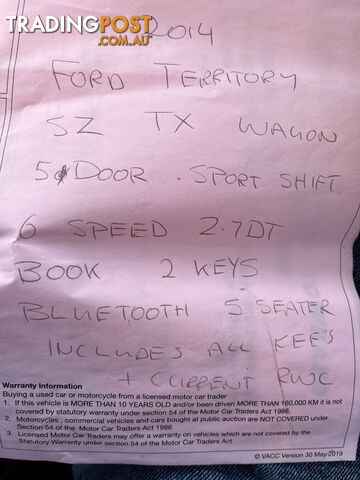 TRADINGPOST
.COM.AU
2014
FORD TERRITORY
SZ TX WAGON
5 DOOR . SPORT SHIFT
6 SPEED 2.7DT
BOOK 2 KEYS
BLUETOOTH 5 SEATER
INCLUDES ALL KEE'S
+ CURRENT RWC
Warranty Information
Buying a used car or motorcycle from a licensed motor car trader
1. If this vehicle is MORE THAN 10 YEARS OLD and/or been driven MORE THAN 160,000 KM it is not
covered by statutory warranty under section 54 of the Motor Car Traders Act 1986.
2. Motorcycles , commercial vehicles and cars bought at public auction are NOT COVERED under
Section 54 of the Motor Car Traders Act 1986
3. Licensed Motor Car Traders may offer a warranty on vehicles which are not covered by the
Statutory Warranty under section 54 of the Motor Car Traders Act
© VACC Version 30 May 2019